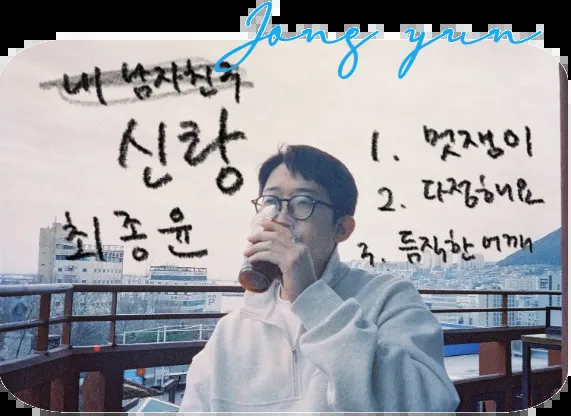 Jong yun
내 남자친구
신랑
최종윤
1. 멋쟁이
2. 다정해요
3. 듬직한 어깨